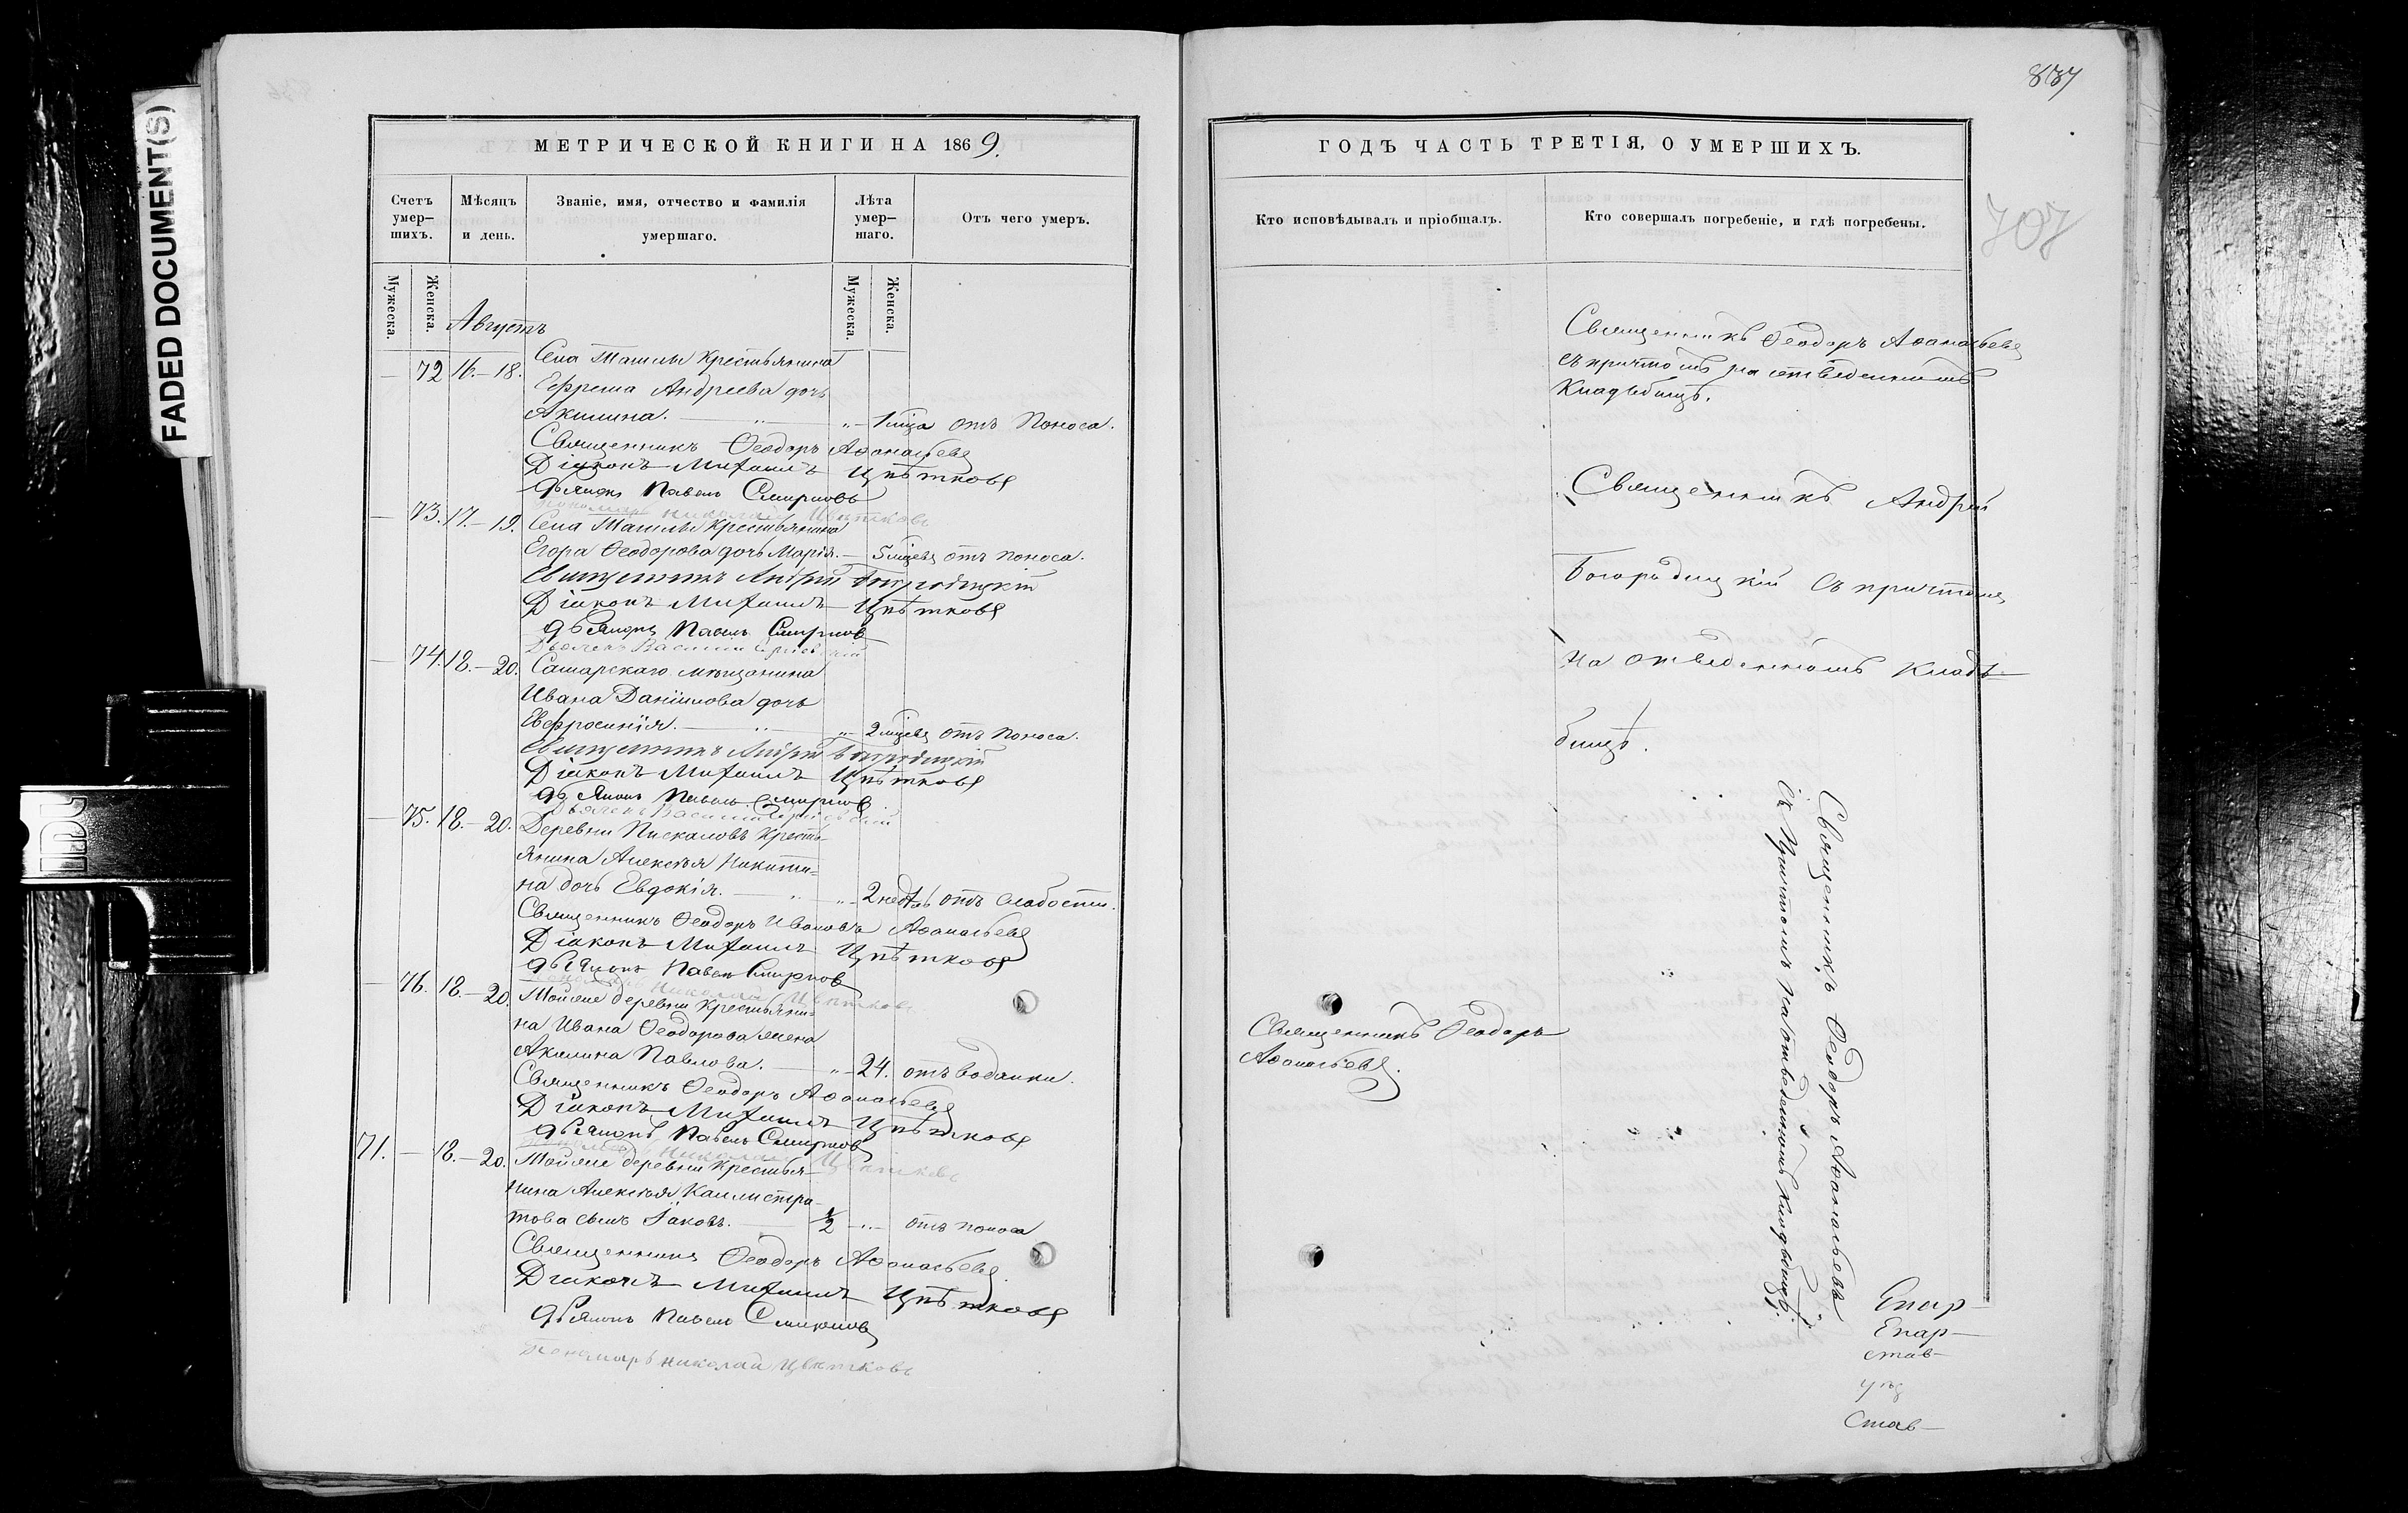 FADED DOCUMENT(S)
МЕТРИЧЕСКОЙ КНИГИ НА 1869.
Счетъ умер-шихъ.
Мѣсяцъ и день.
Званіе, имя, отчество и фамилія умершаго.
Лѣта умер-шаго.
Отъ чего умеръ.
Мужеска. Женска. Мужеска. Женска.
Августъ
— 72 16.—18. Села Ташлы Крестьянина
Ефрема Андреева дочь
Акилина. — „ — „ — 1 мца отъ Поноса.
Священникъ Ѳеодоръ Аѳанасьевъ
Діаконъ Михаилъ Цвѣтковъ
Дьячокъ Павелъ Смирновъ
Пономарь Николай Цвѣтковъ
— 73. 17.—19. Села Ташлы Крестьянина
Егора Ѳеодорова дочь Марія. — 5 мцевъ отъ поноса.
Священникъ Андрей Богородицкій
Діаконъ Михаилъ Цвѣтковъ
Дьячокъ Павелъ Смирновъ
Дьячекъ Василій
— 74. 18.—20. Самарскаго мѣщанина
Ивана Даніилова дочь
Евфросинія. — „ — „ — 2 мцевъ отъ поноса.
Священникъ Андрей Богородицкій
Діаконъ Михаилъ Цвѣтковъ
Дьячокъ Павелъ Смирновъ
Дьячекъ Василій
— 75. 18.—20. Деревни Пискаловъ Кресть-
янина Алексѣя Никити-
на дочь Евдокія. — „ — „ — 2 недѣль отъ слабости.
Священникъ Ѳеодоръ Ивановъ Аѳанасьевъ
Діаконъ Михаилъ Цвѣтковъ
Дьячокъ Павелъ Смирновъ
Пономарь Николай Цвѣтковъ
— 76. 18.—20. Той же деревни Крестьяни-
на Ивана Ѳеодорова жена
Акилина Павлова. — „ — 24. отъ водянки.
Священникъ Ѳеодоръ Аѳанасьевъ
Діаконъ Михаилъ Цвѣтковъ
Дьячокъ Павелъ Смирновъ
Пономарь Николай Цвѣтковъ
71. — 18.—20. Той же деревни Крестья-
нина Алексѣя Каллистра-
това сынъ Іаковъ. — 1/2 — „ — отъ поноса
Священникъ Ѳеодоръ Аѳанасьевъ
Діаконъ Михаилъ Цвѣтковъ
Дьячокъ Павелъ Смирновъ
Пономарь Николай Цвѣтковъ
ГОДЪ ЧАСТЬ ТРЕТІЯ, О УМЕРШИХЪ.
707
Кто исповѣдывалъ и пріобщалъ.
Кто совершалъ погребеніе, и гдѣ погребены.
Священникъ Ѳеодоръ Аѳанасьевъ
съ причтомъ на отведенномъ
Кладбищѣ.
Священникъ Андрей
Богородицкій съ причтомъ
на отведенномъ кладъ-
бищѣ.
Священникъ Ѳеодоръ Аѳанасьевъ
съ Причтомъ на отведенномъ кладбищѣ.
Священникъ Ѳеодоръ
Аѳанасьевъ.
Епар-
Епар-
став-
Став-